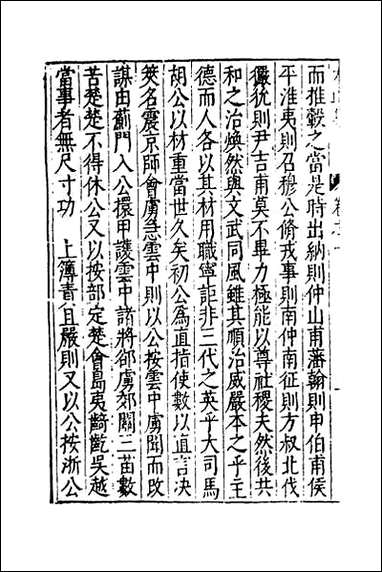 而推轂之當是時出納則仲山甫蕃翰則申伯甫侯
平淮夷則召穆公脩戎事則南仲南征則方叔北伐
玁狁則尹吉甫莫不畢力極能以尊社稷夫然後共
和之治煥然與文武同風雖其順治威嚴本之乎主
德而人各以其材用職寧詎非三代之英乎大司馬
胡公以材重當世久矣初公為直指使數以直言決
筴名震京師會虜急雲中則以公按雲中虜聞而改
謀由薊門入公擐甲護雲中諸將郤虜郊關三苗數
苦楚楚不得休公又以按部定楚會島夷齮齕吳越
當事者無尺寸功 上簿責且嚴則又以公按浙公